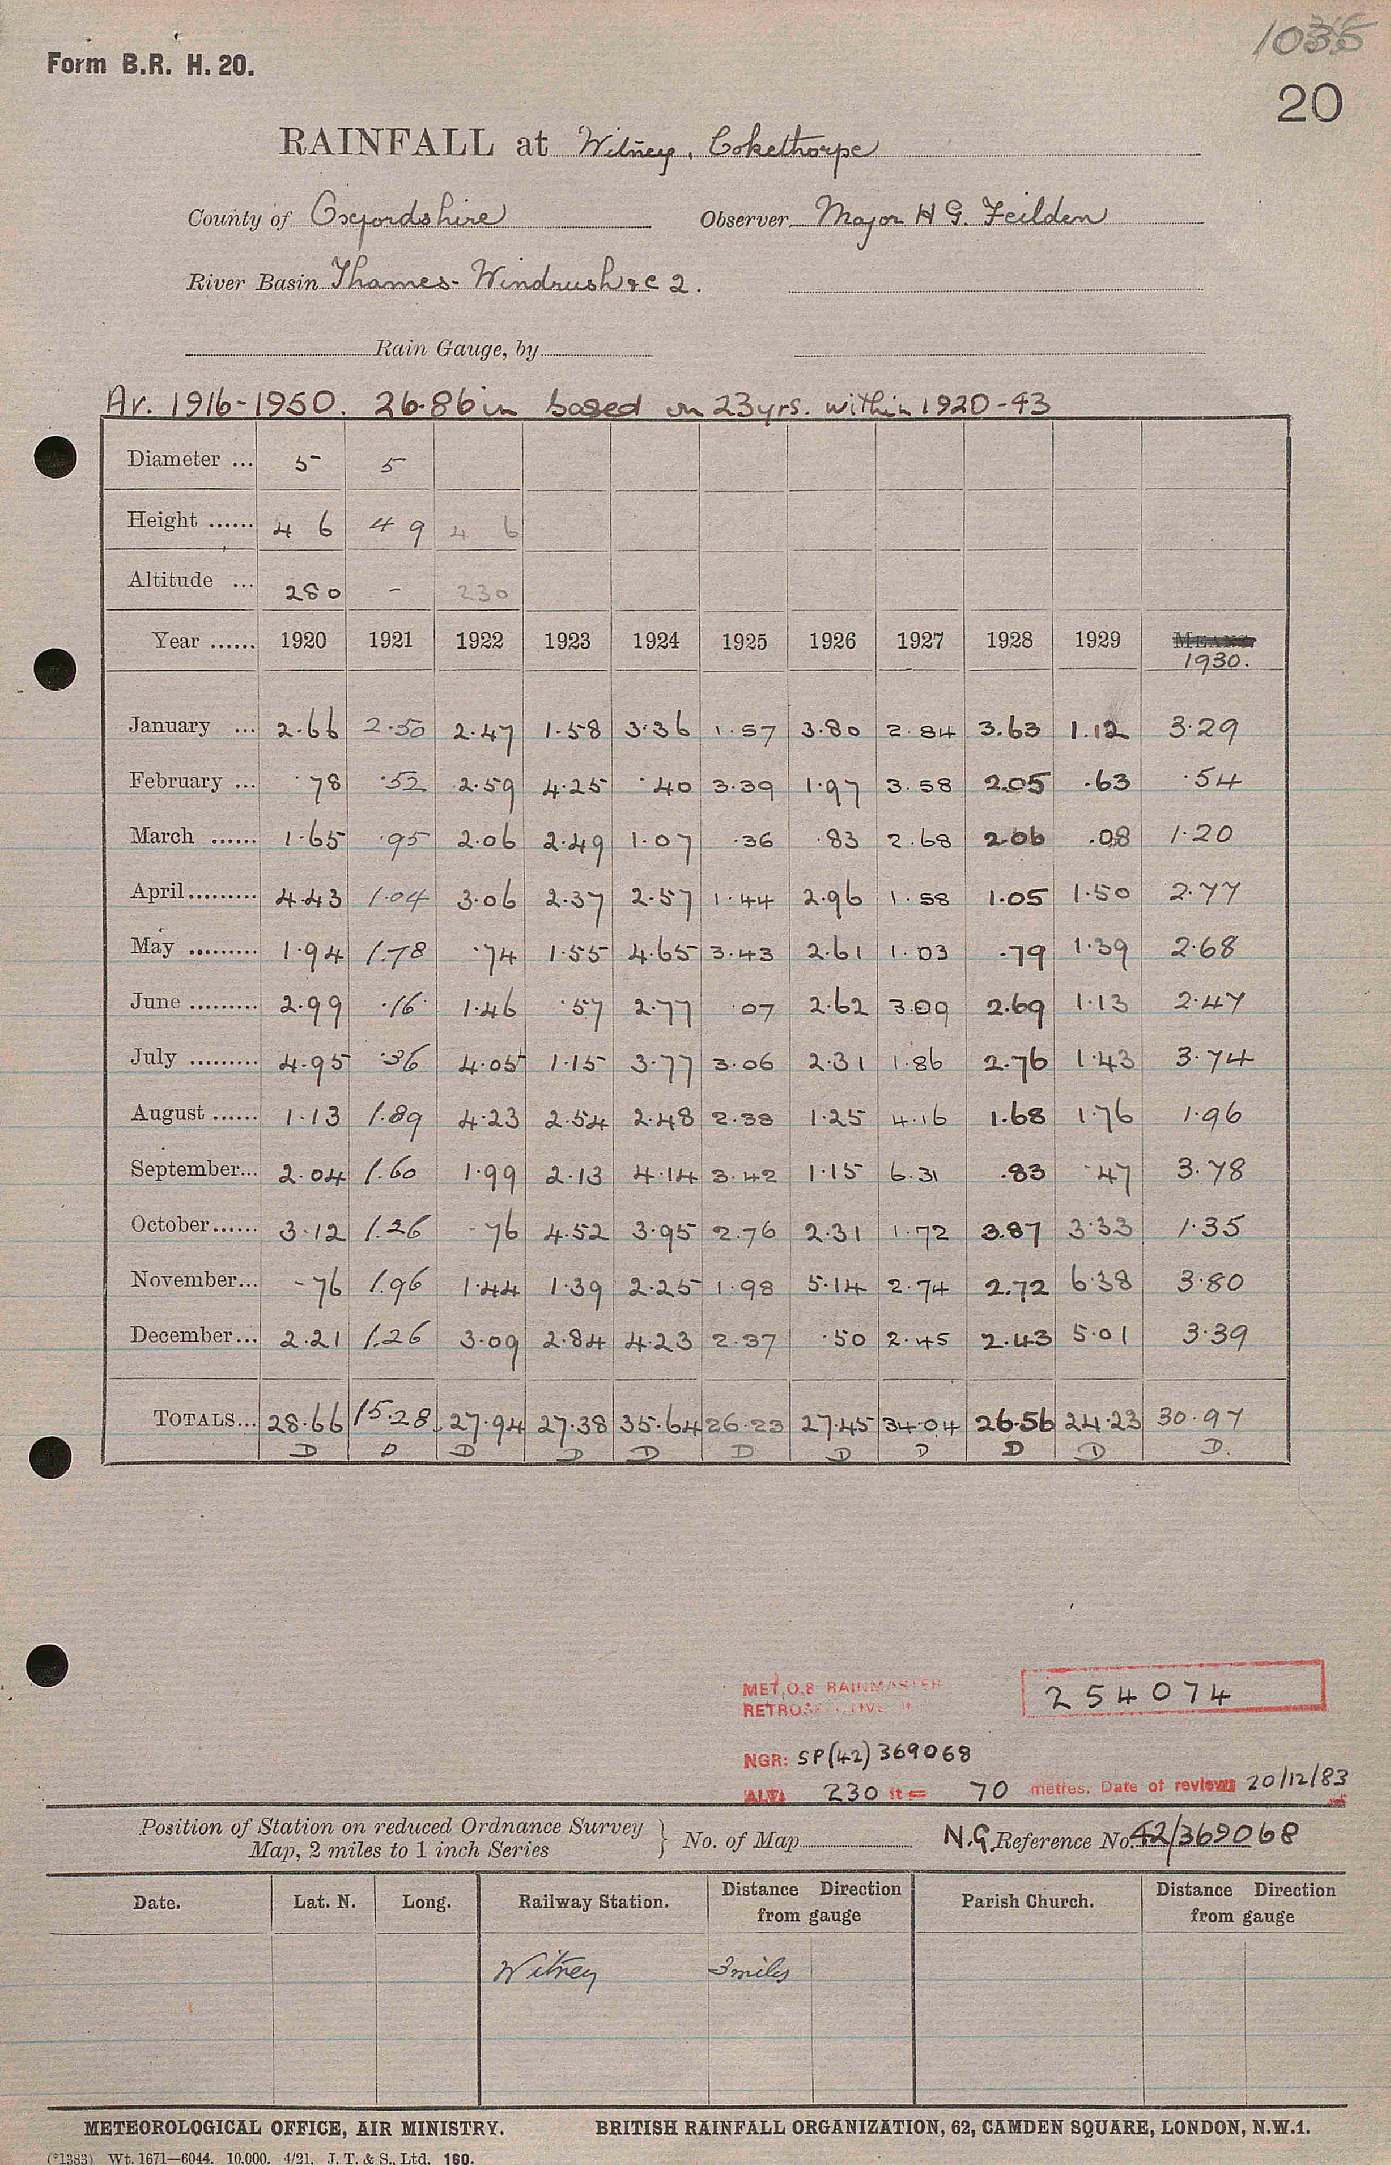 1035
Form B.R. H. 20.
20
RAINFALL at Witney, Cokethorpe
County of Oxfordshire Observer Major H G. Feilden
River Basin Thames - Windrush &c 2.
Rain Gauge, by
Av. 1916-1950. 26.86 in based on 23 yrs. within 1920-43
Diameter ... 5 5
Height ...... 4 6 4 9 4 6
Altitude ... 280 - 230
Year ...... 1920 1921 1922 1923 1924 1925 1926 1927 1928 1929 MEANS
1930.
January ... 2.66 2.50 2.47 1.58 3.36 1.57 3.80 2.84 3.63 1.12 3.29
February ... .78 .52 2.59 4.25 .40 3.39 1.97 3.58 2.05 .63 .54
March ...... 1.65 .95 2.06 2.49 1.07 .36 .83 2.68 2.06 .08 1.20
April......... 4.43 1.04 3.06 2.37 2.57 1.44 2.96 1.58 1.05 1.50 2.77
May ......... 1.94 1.78 .74 1.55 4.65 3.43 2.61 1.03 .79 1.39 2.68
June ......... 2.99 .16 1.46 .57 2.77 .07 2.62 3.09 2.69 1.13 2.47
July ......... 4.95 .36 4.05 1.15 3.77 3.06 2.31 1.86 2.76 1.43 3.74
August ...... 1.13 1.89 4.23 2.54 2.48 2.38 1.25 4.16 1.68 1.76 1.96
September... 2.04 1.60 1.99 2.13 4.14 3.42 1.15 6.31 .83 .47 3.78
October...... 3.12 1.26 .76 4.52 3.95 2.76 2.31 1.72 3.87 3.33 1.35
November... .76 1.96 1.44 1.39 2.25 1.98 5.14 2.74 2.72 6.38 3.80
December... 2.21 1.26 3.09 2.84 4.23 2.37 .50 2.45 2.43 5.01 3.39
TOTALS... 28.66 15.28 27.94 27.38 35.64 26.23 27.45 34.04 26.56 24.23 30.97
D D D D D D D D D D D.
MET.O.8 RAINMASTER
RETROSPECTIVE
254074
NGR: SP(42) 369068
ALT: 230 ft = 70 metres. Date of review: 20/12/83
Position of Station on reduced Ordnance Survey
Map, 2 miles to 1 inch Series } No. of Map N.G. Reference No. 42/369068
Date. Lat. N. Long. Railway Station. Distance Direction from gauge Parish Church. Distance Direction from gauge
Witney 3 miles
METEOROLOGICAL OFFICE, AIR MINISTRY. BRITISH RAINFALL ORGANIZATION, 62, CAMDEN SQUARE, LONDON, N.W.1.
(*1383) Wt. 1671—6044. 10,000. 4/21. J. T. & S., Ltd. 160.